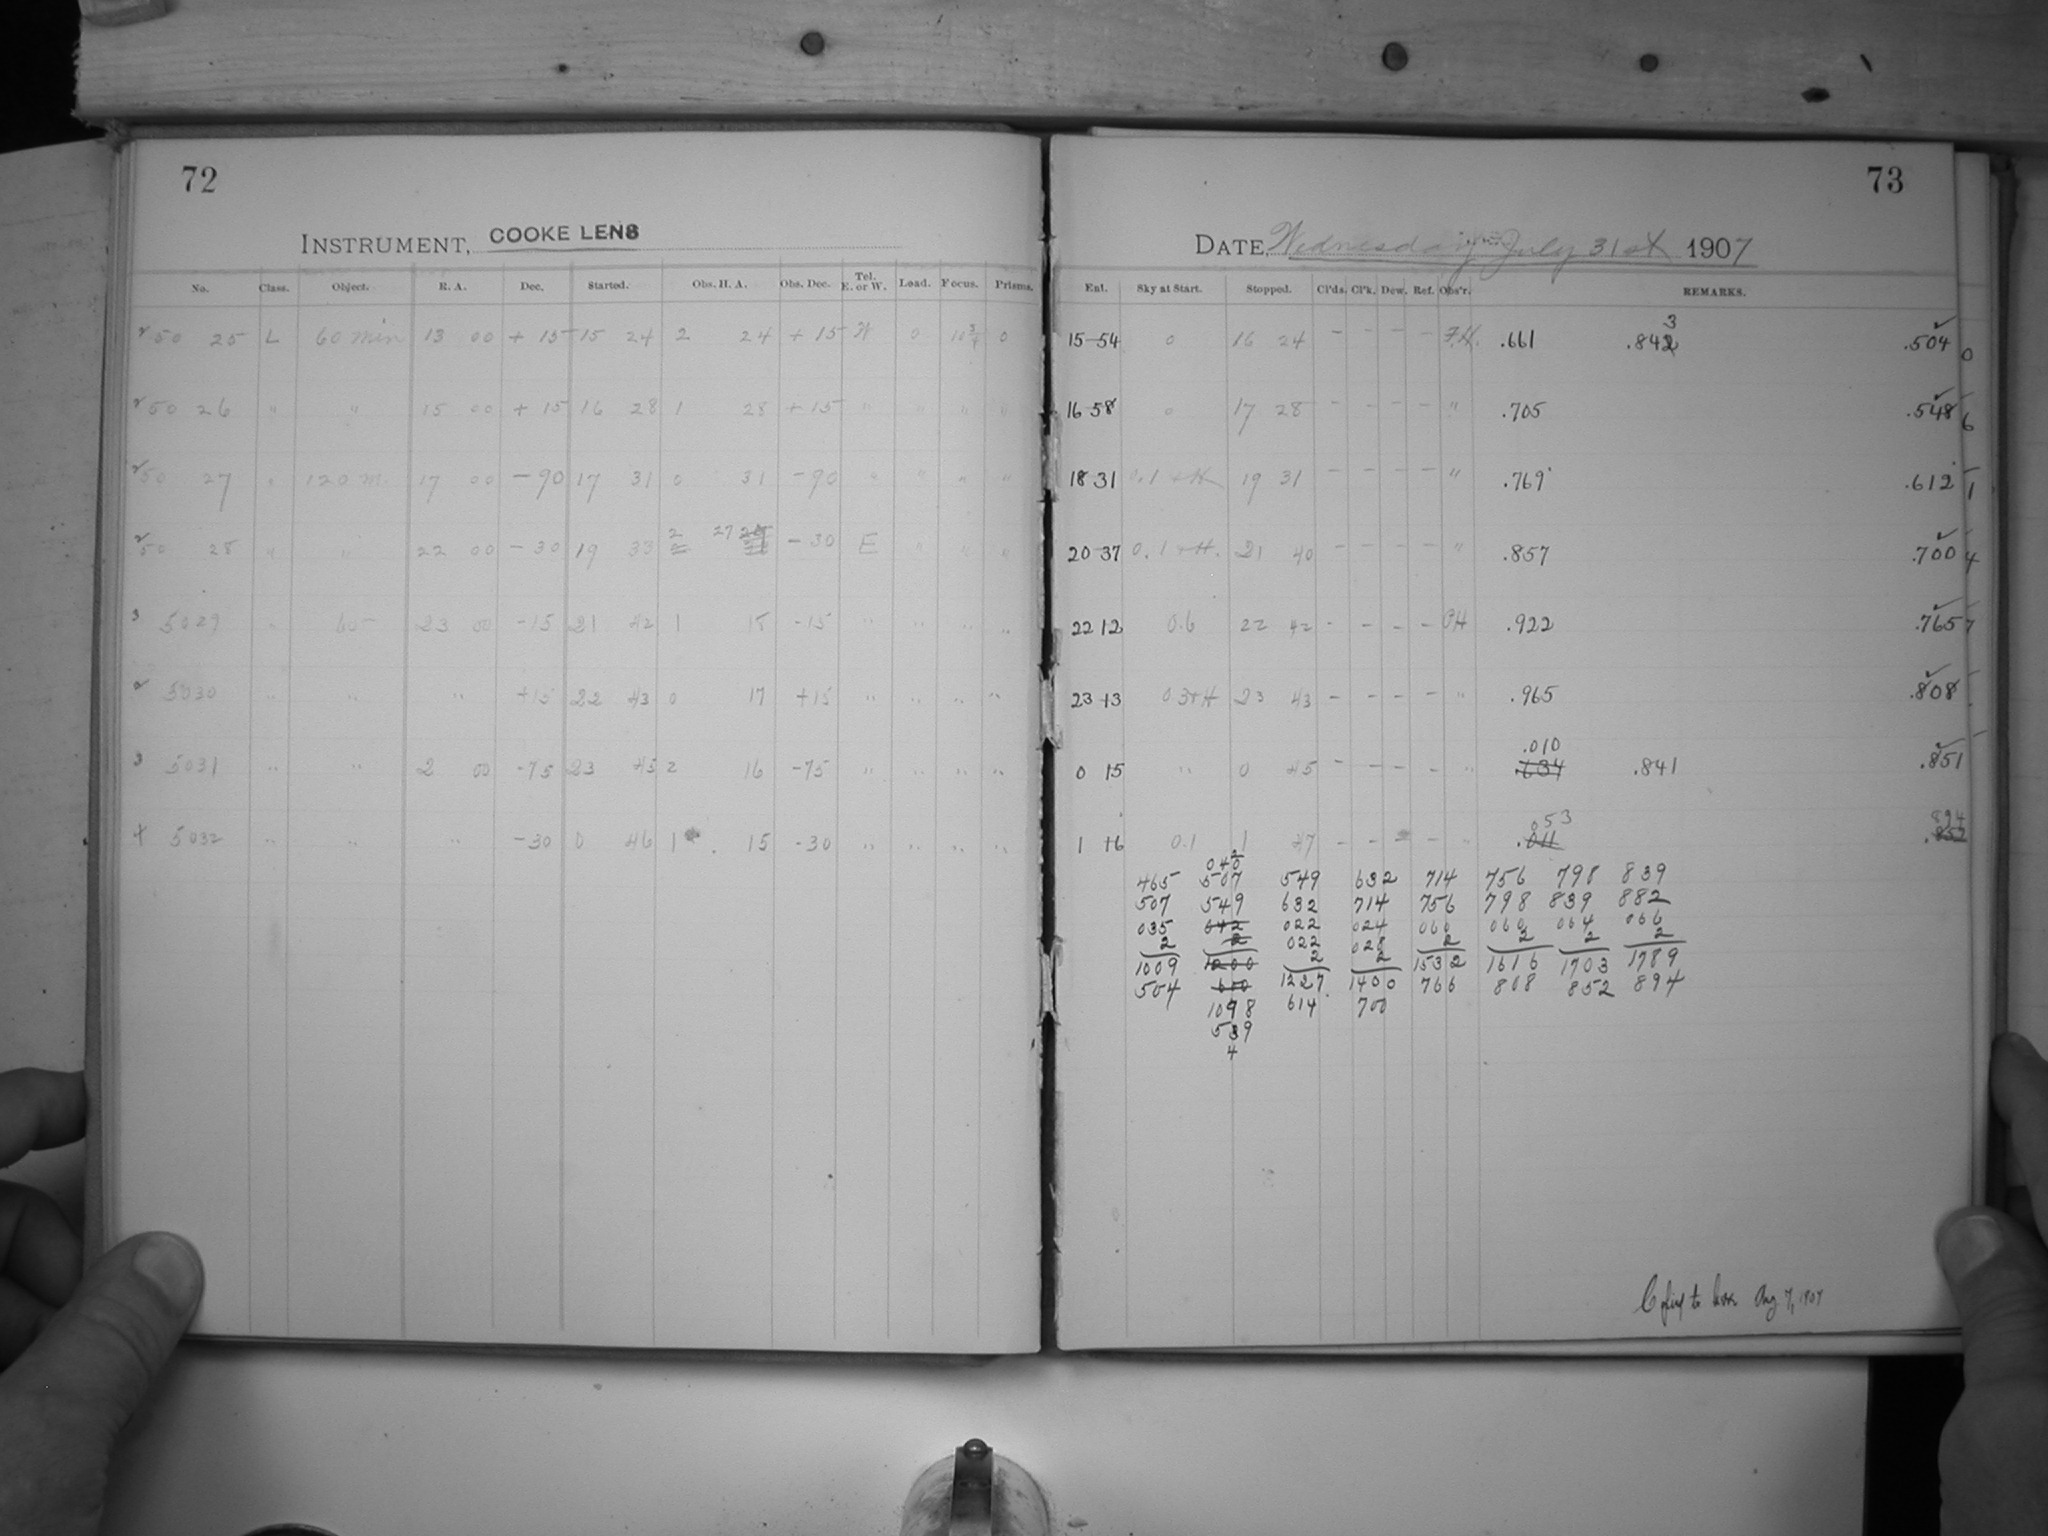 72
INSTRUMENT, COOKE LENS
No. Class. Object. R. A. Dec. Started. Obs. H. A. Obs. Dec. Tel. E. or W. Load. Focus. Prisms.
50 25 L 60 min 13 00 + 15 15 24 2 24 + 15 W 0 10 3/4 0
50 26 " " 15 00 + 15 16 28 1 28 + 15 " " " "
50 27 " 120 m. 17 00 - 90 17 31 0 31 - 90 " " " "
50 28 " " 22 00 - 30 19 33 2 27 - 30 E " " "
5029 " 60 23 00 - 15 21 42 1 15 - 15 " " " "
5030 " " " + 15 22 43 0 17 + 15 " " " "
5031 " " 2 00 - 75 23 45 2 16 - 75 " " " "
5032 " " " - 30 0 46 1 15 - 30 " " " "
73
DATE, Wednesday July 31st 1907
Ent. Sky at Start. Stopped. Cl'ds. Cl'k. Dew. Ref. Obs'r. REMARKS.
15 54 0 16 24 - - - - F.H. .661 .843 .504
16 58 0 17 28 - - - - " .705 .548
18 31 0.1 + H 19 31 - - - - " .769 .612
20 37 0.1 + H. 21 40 - - - - " .857 .700
22 12 0.6 22 42 - - - - OH .922 .765
23 13 0.3 + H 23 43 - - - - " .965 .808
.010
0 15 " 0 45 - - - - " .634 .841 .851
053 894
1 16 0.1 1 47 - - - - " .011 .852
042
465 507 549 632 714 756 798 839
507 549 632 714 756 798 839 882
035 042 022 024 060 060 064 066
2 2 022 028 2 2 2 2
1009 1200 2 2 1532 1616 1703 1789
504 600 1227 1400 766 808 852 894
1098 614 700
539
4
Copied to box Aug 7, 1907